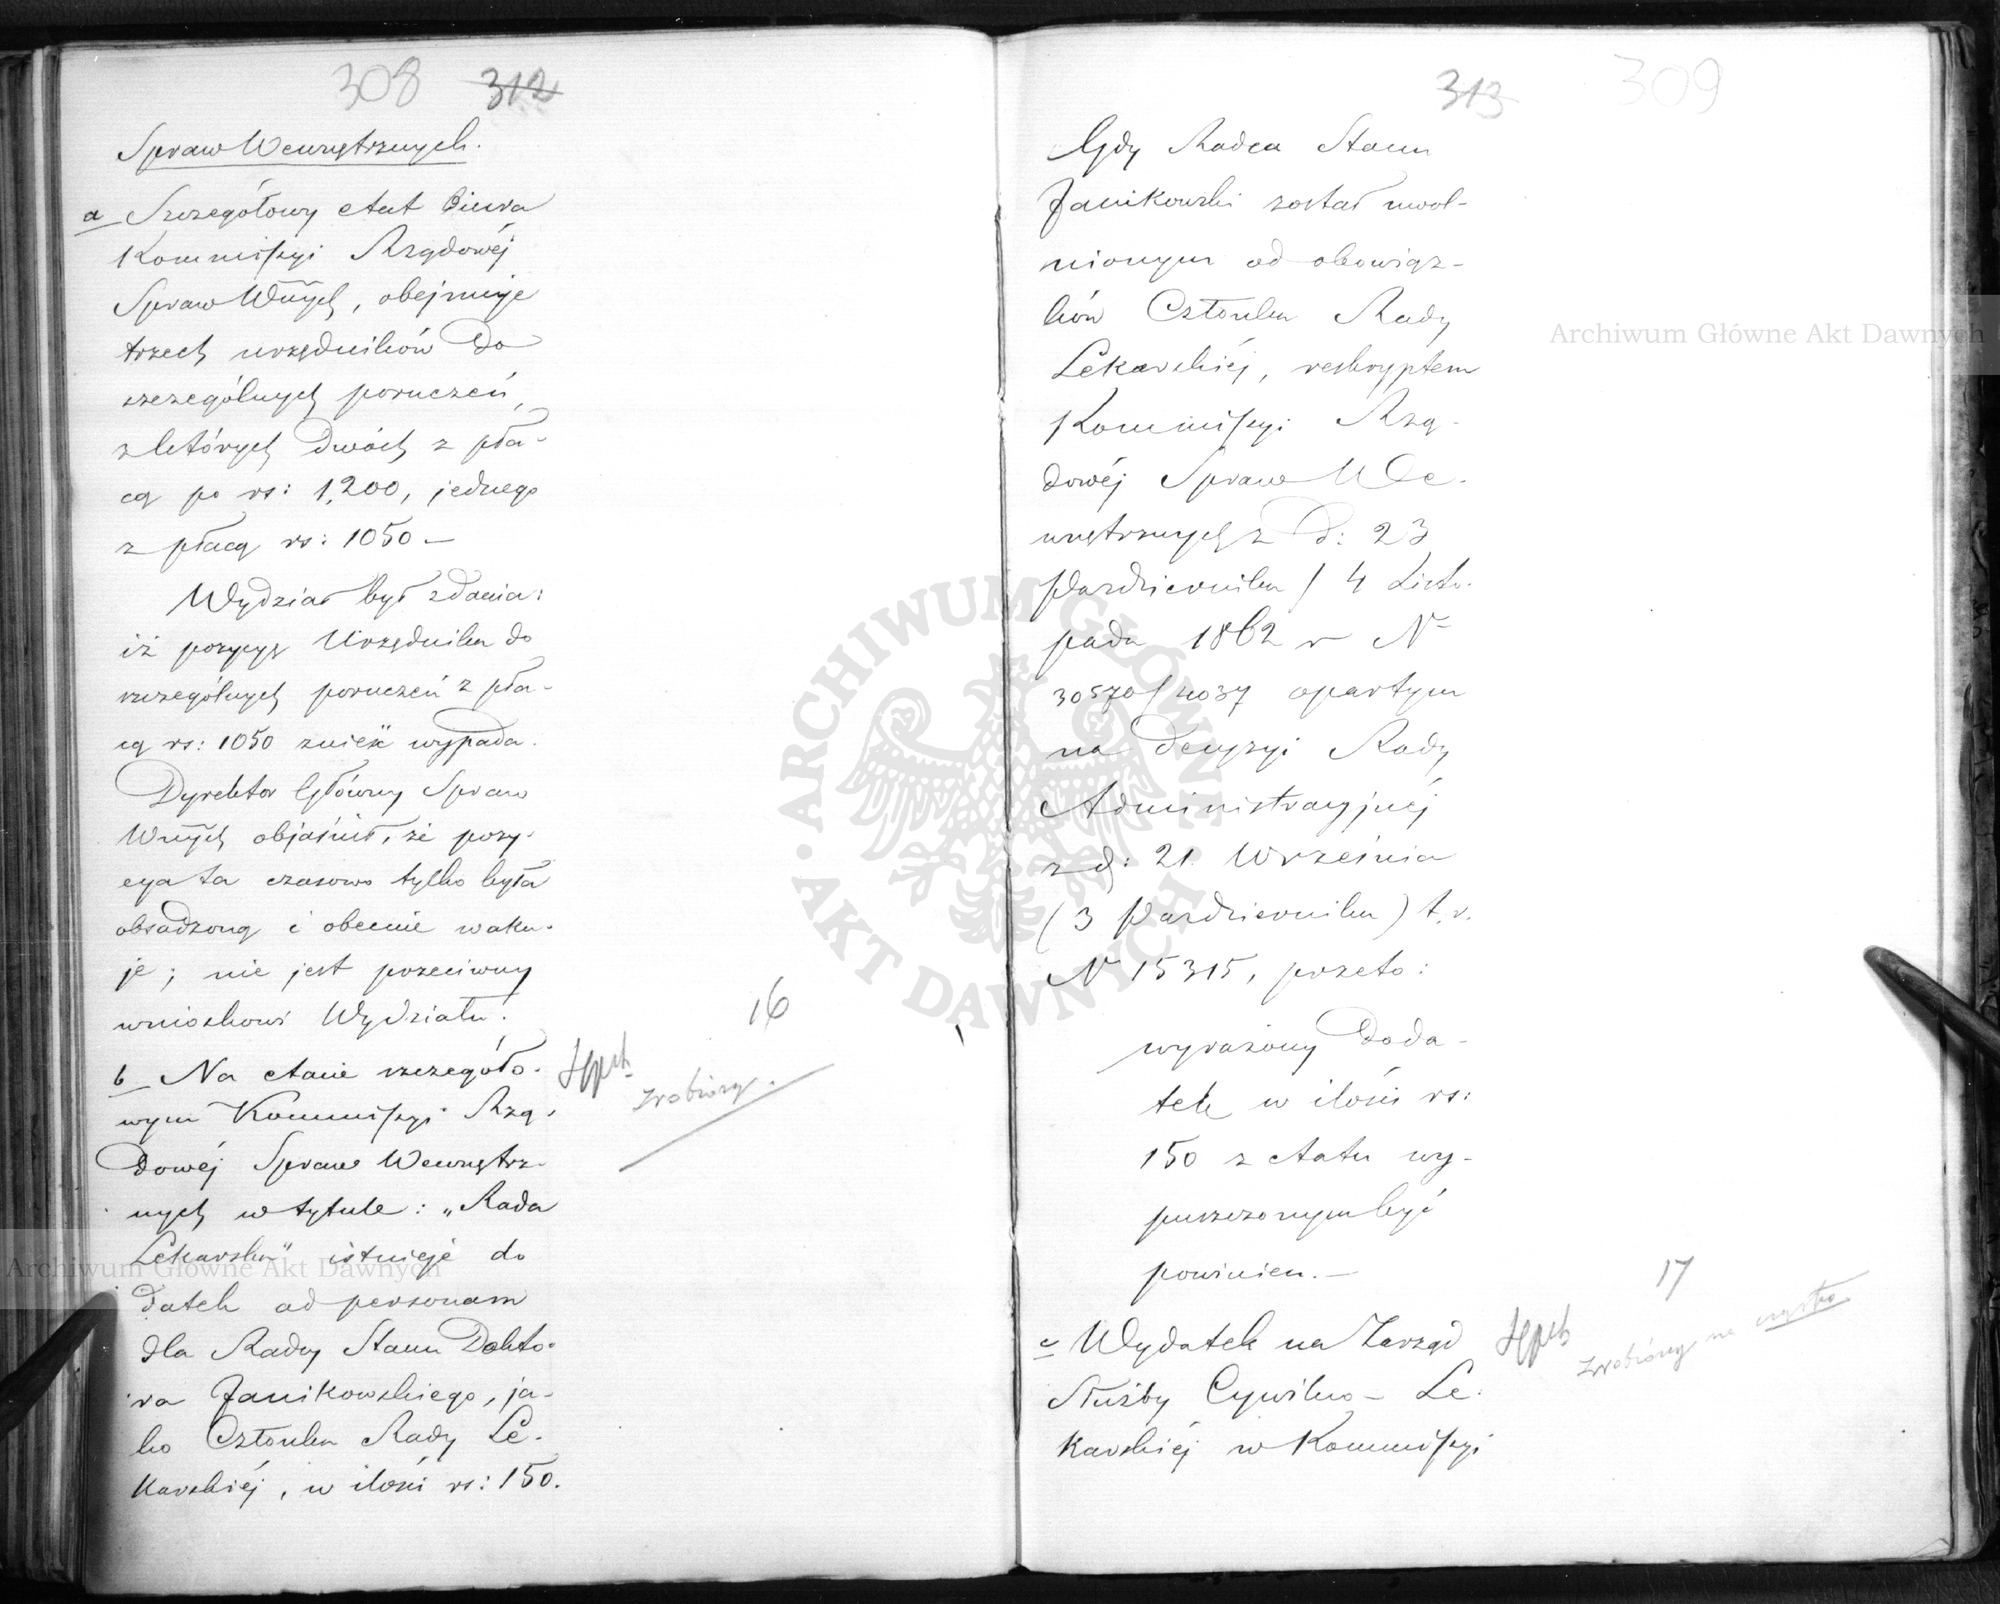 308 312
Spraw Wewnętrznych.
a Szczegółowy etat Biura
Kommissyi Rządowéj
Spraw Wnnych, obejmuje
trzech urzędników do
szczególnych poruczeń,
z których dwóch z pła-
cą po rs: 1,200, jednego
z płacą rs: 1050 —
Wydział był zdania:
iż pozycyę Urzędnika do
szczególnych poruczeń z pła-
cą rs: 1050 znieść wypada.
Dyrektor Główny Spraw
Wnnych objaśnił, że pozy-
cya ta czasowo tylko była
obsadzoną i obecnie waku-
je; nie jest przeciwny
wnioskowi Wydziału.
16
b Na etacie szczegóło-
zrobiony.
wym Kommissyi Rzą-
dowéj Spraw Wewnętrz-
nych w tytule: „Rada
Lekarska" istnieje do
datek ad personam
dla Radcy Stanu Dokto-
ra Janikowskiego, ja-
ko Członka Rady Le-
karskiéj, w ilości rs: 150.
313 309
Gdy Radca Stanu
Janikowski został uwol-
nionym od obowiąz-
ków Członka Rady
Lekarskiéj, reskryptem
Kommissyi Rzą-
dowéj Spraw We-
wnętrznych z d: 23
Października / 4 Listo-
pada 1862 r N
30570/4037 opartym
na decyzyi Rady
Administracyjnéj
z d: 21 Września
(3 Października) t. r.
N 15315, przeto:
wyrażony doda-
tek w ilości rs:
150 z etatu wy-
puszczonym być
powinien. —
17
c Wydatek na Zarząd
zrobiony na czysto
Służby Cywilno-Le-
karskiéj w Kommissyi
Archiwum Główne Akt Dawnych
Archiwum Główne Akt Dawnych
ARCHIWUM GŁÓWNE · AKT DAWNYCH ·